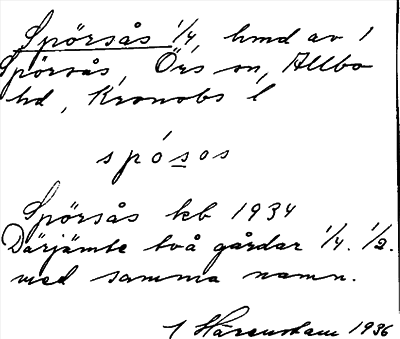 Spörsås 1/4, hmd av 1
Spörsås, Örs sn, Allbo
hd, Kronobs l
spósos
Spörsås kb 1934
Därjämte två gårdar 1/4. 1/2.
med samma namn.
Hårenstam 1936